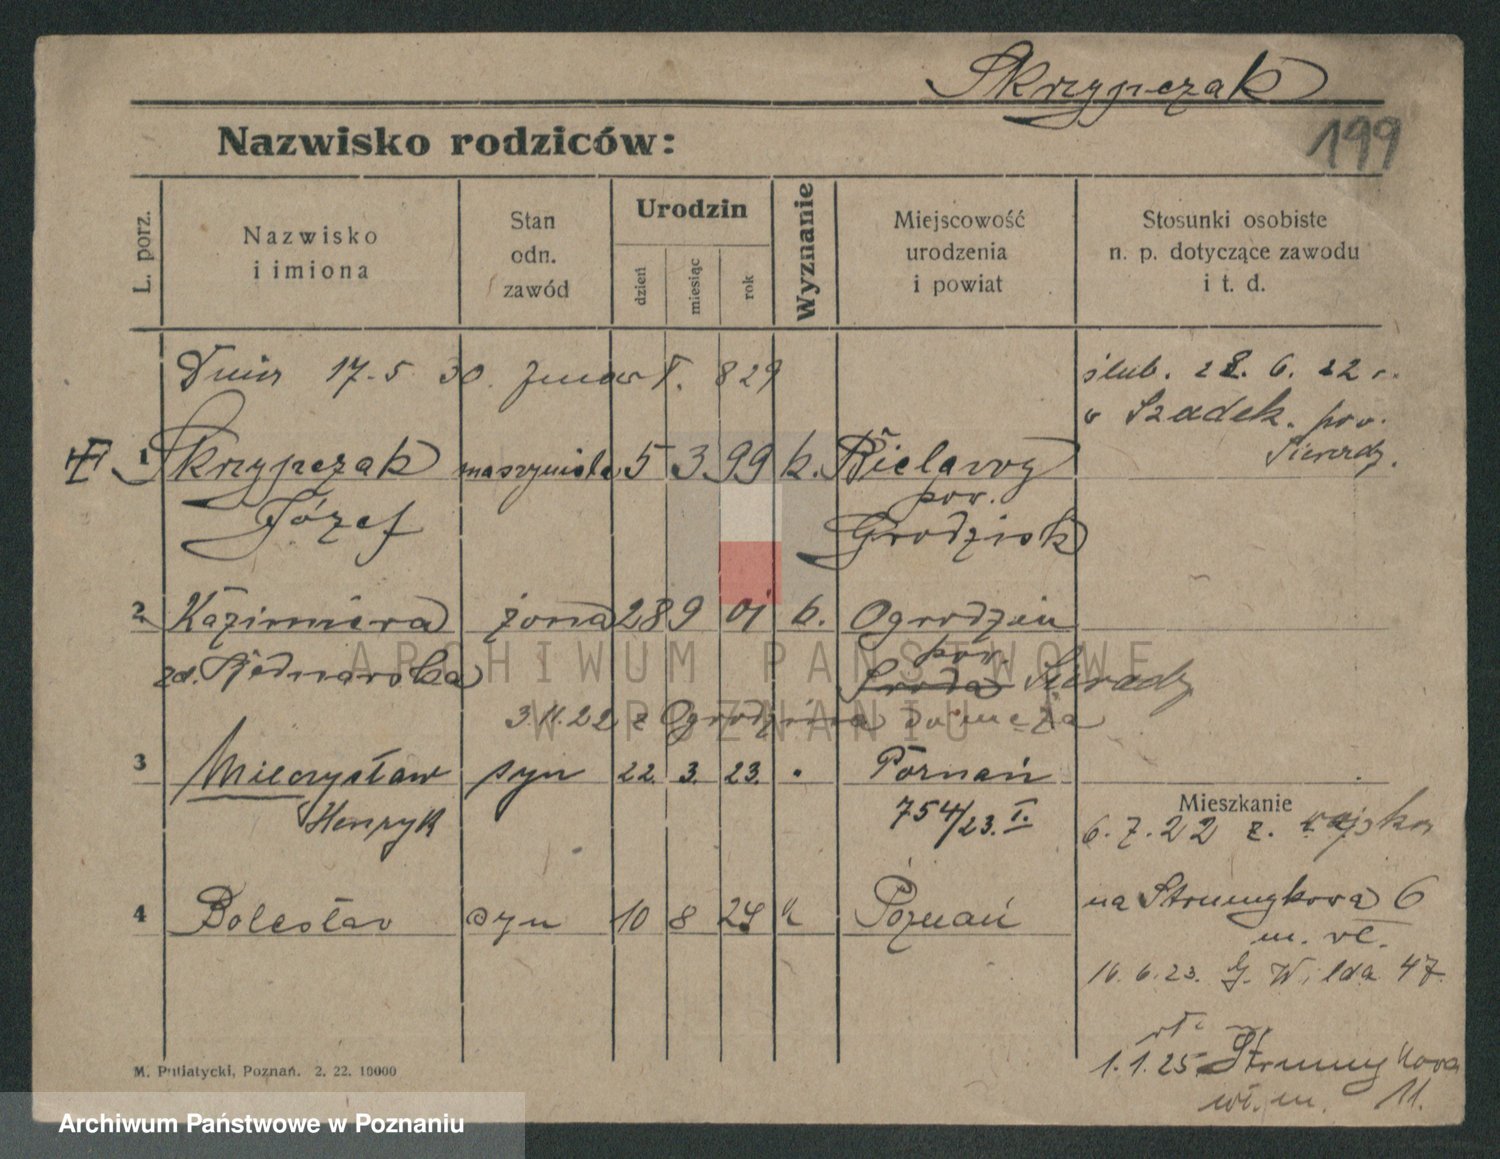 Skrzypczak
199
Nazwisko rodziców:
L. porz.
Nazwisko
i imiona
Stan
odn.
zawód
Urodzin
dzień
miesiąc
rok
Wyznanie
Miejscowość
urodzenia
i powiat
Stosunki osobiste
n. p. dotyczące zawodu
i t. d.
Dnia 17.5 30. zmarł 829
ślub. 28. 6. 22 r.
w Szadek. pow.
Sieradz.
1 Skrzypczak maszynista 5 3 99 k. Bielawy
Józef
pow.
Grodzisk
2 Kazimiera żona 28 9 01 k. Ogrodzim
zd. Bednarska
pow.
Środa Sieradz
3.11.22 z Ogrodzima do męża
3 Mieczysław syn 22. 3. 23. Poznań
Henryk
754/23. I.
Mieszkanie
6. 7. 22 z. wojska
4 Bolesław syn 10 8 24 k Poznań
na Strumykowa 6
m.
16. 6. 23. G. Wilda 47
1.1.25. Strumykowa
m. 11.
M. Putiatycki, Poznań. 2. 22. 10000
ARCHIWUM PAŃSTWOWE
W POZNANIU
Archiwum Państwowe w Poznaniu